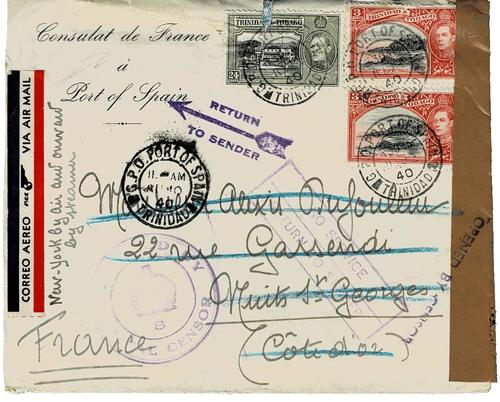 Consulat de France
à
Port of Spain
TRINIDAD & TOBAGO
24
3
TRINIDAD & TOBAGO
3
TRINIDAD & TOBAGO
G.P.O. PORT OF SPAIN
40
TRINIDAD
G.P.O. PORT OF SPAIN
40
TRINIDAD
G.P.O. PORT OF SPAIN
AM
40
TRINIDAD
RETURN
TO SENDER
VIA AIR MAIL
CORREO AEREO
New-York by air and onward
by steamer
Alexis
22 rue Gassendi
Nuits St Georges
(Côte d'or)
France
NO SERVICE
CENSOR
8
OPENED BY CENSOR